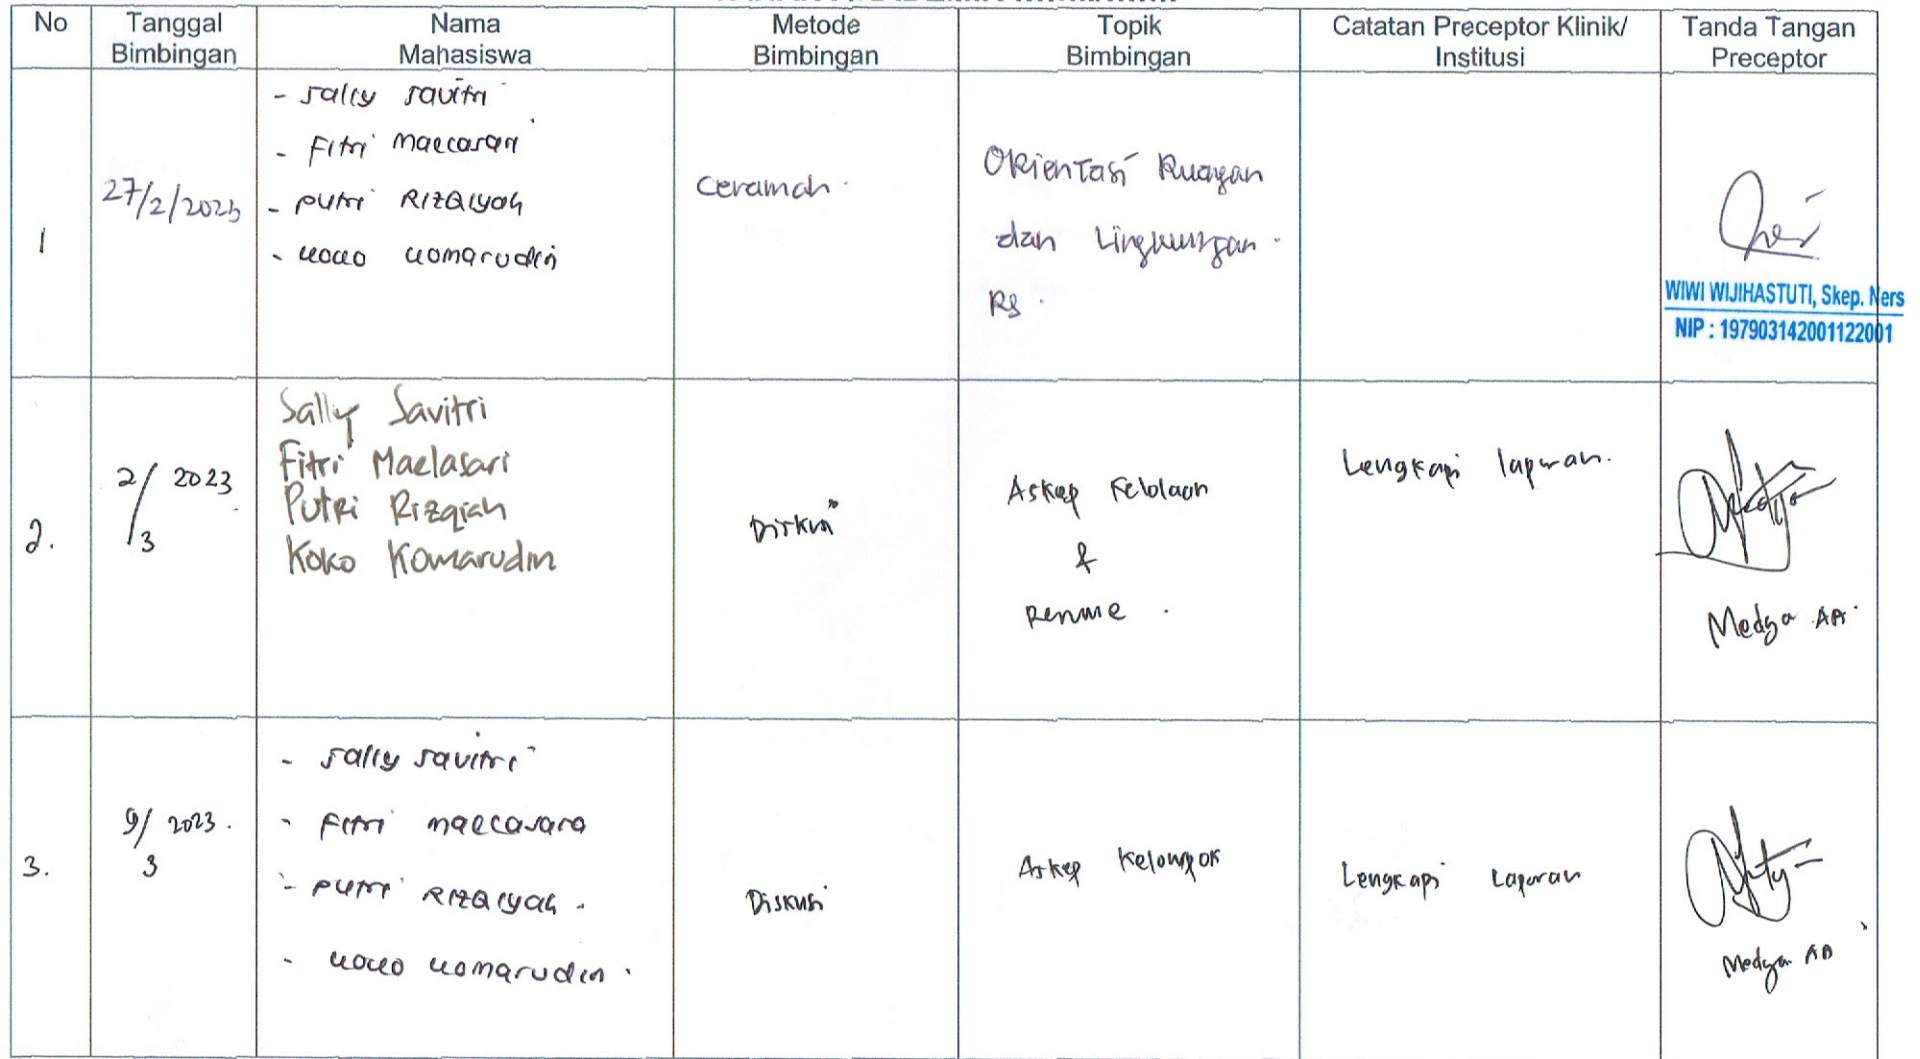 No
Tanggal Bimbingan
Nama Mahasiswa
Metode Bimbingan
Topik Bimbingan
Catatan Preceptor Klinik/ Institusi
Tanda Tangan Preceptor
1
27/2/2023
- Sally Savitri
- Fitri Maelasari
- Putri Rizqiyah
- Koko Komarudin
Ceramah.
Orientasi Ruangan
dan Lingkungan.
RS.
WIWI WIJIHASTUTI, Skep. Ners
NIP : 197903142001122001
2.
2/3 2023
Sally Savitri
Fitri Maelasari
Putri Rizqiah
Koko Komarudin
Diskusi
Askep Kelolaan
&
Resume.
Lengkapi laporan.
Medya AA
3.
9/3 2023.
- Sally Savitri
- Fitri Maelasara
- Putri Rizqiyah.
- Koko Komarudin.
Diskusi
Askep Kelompok
Lengkapi Laporan
Medya AA